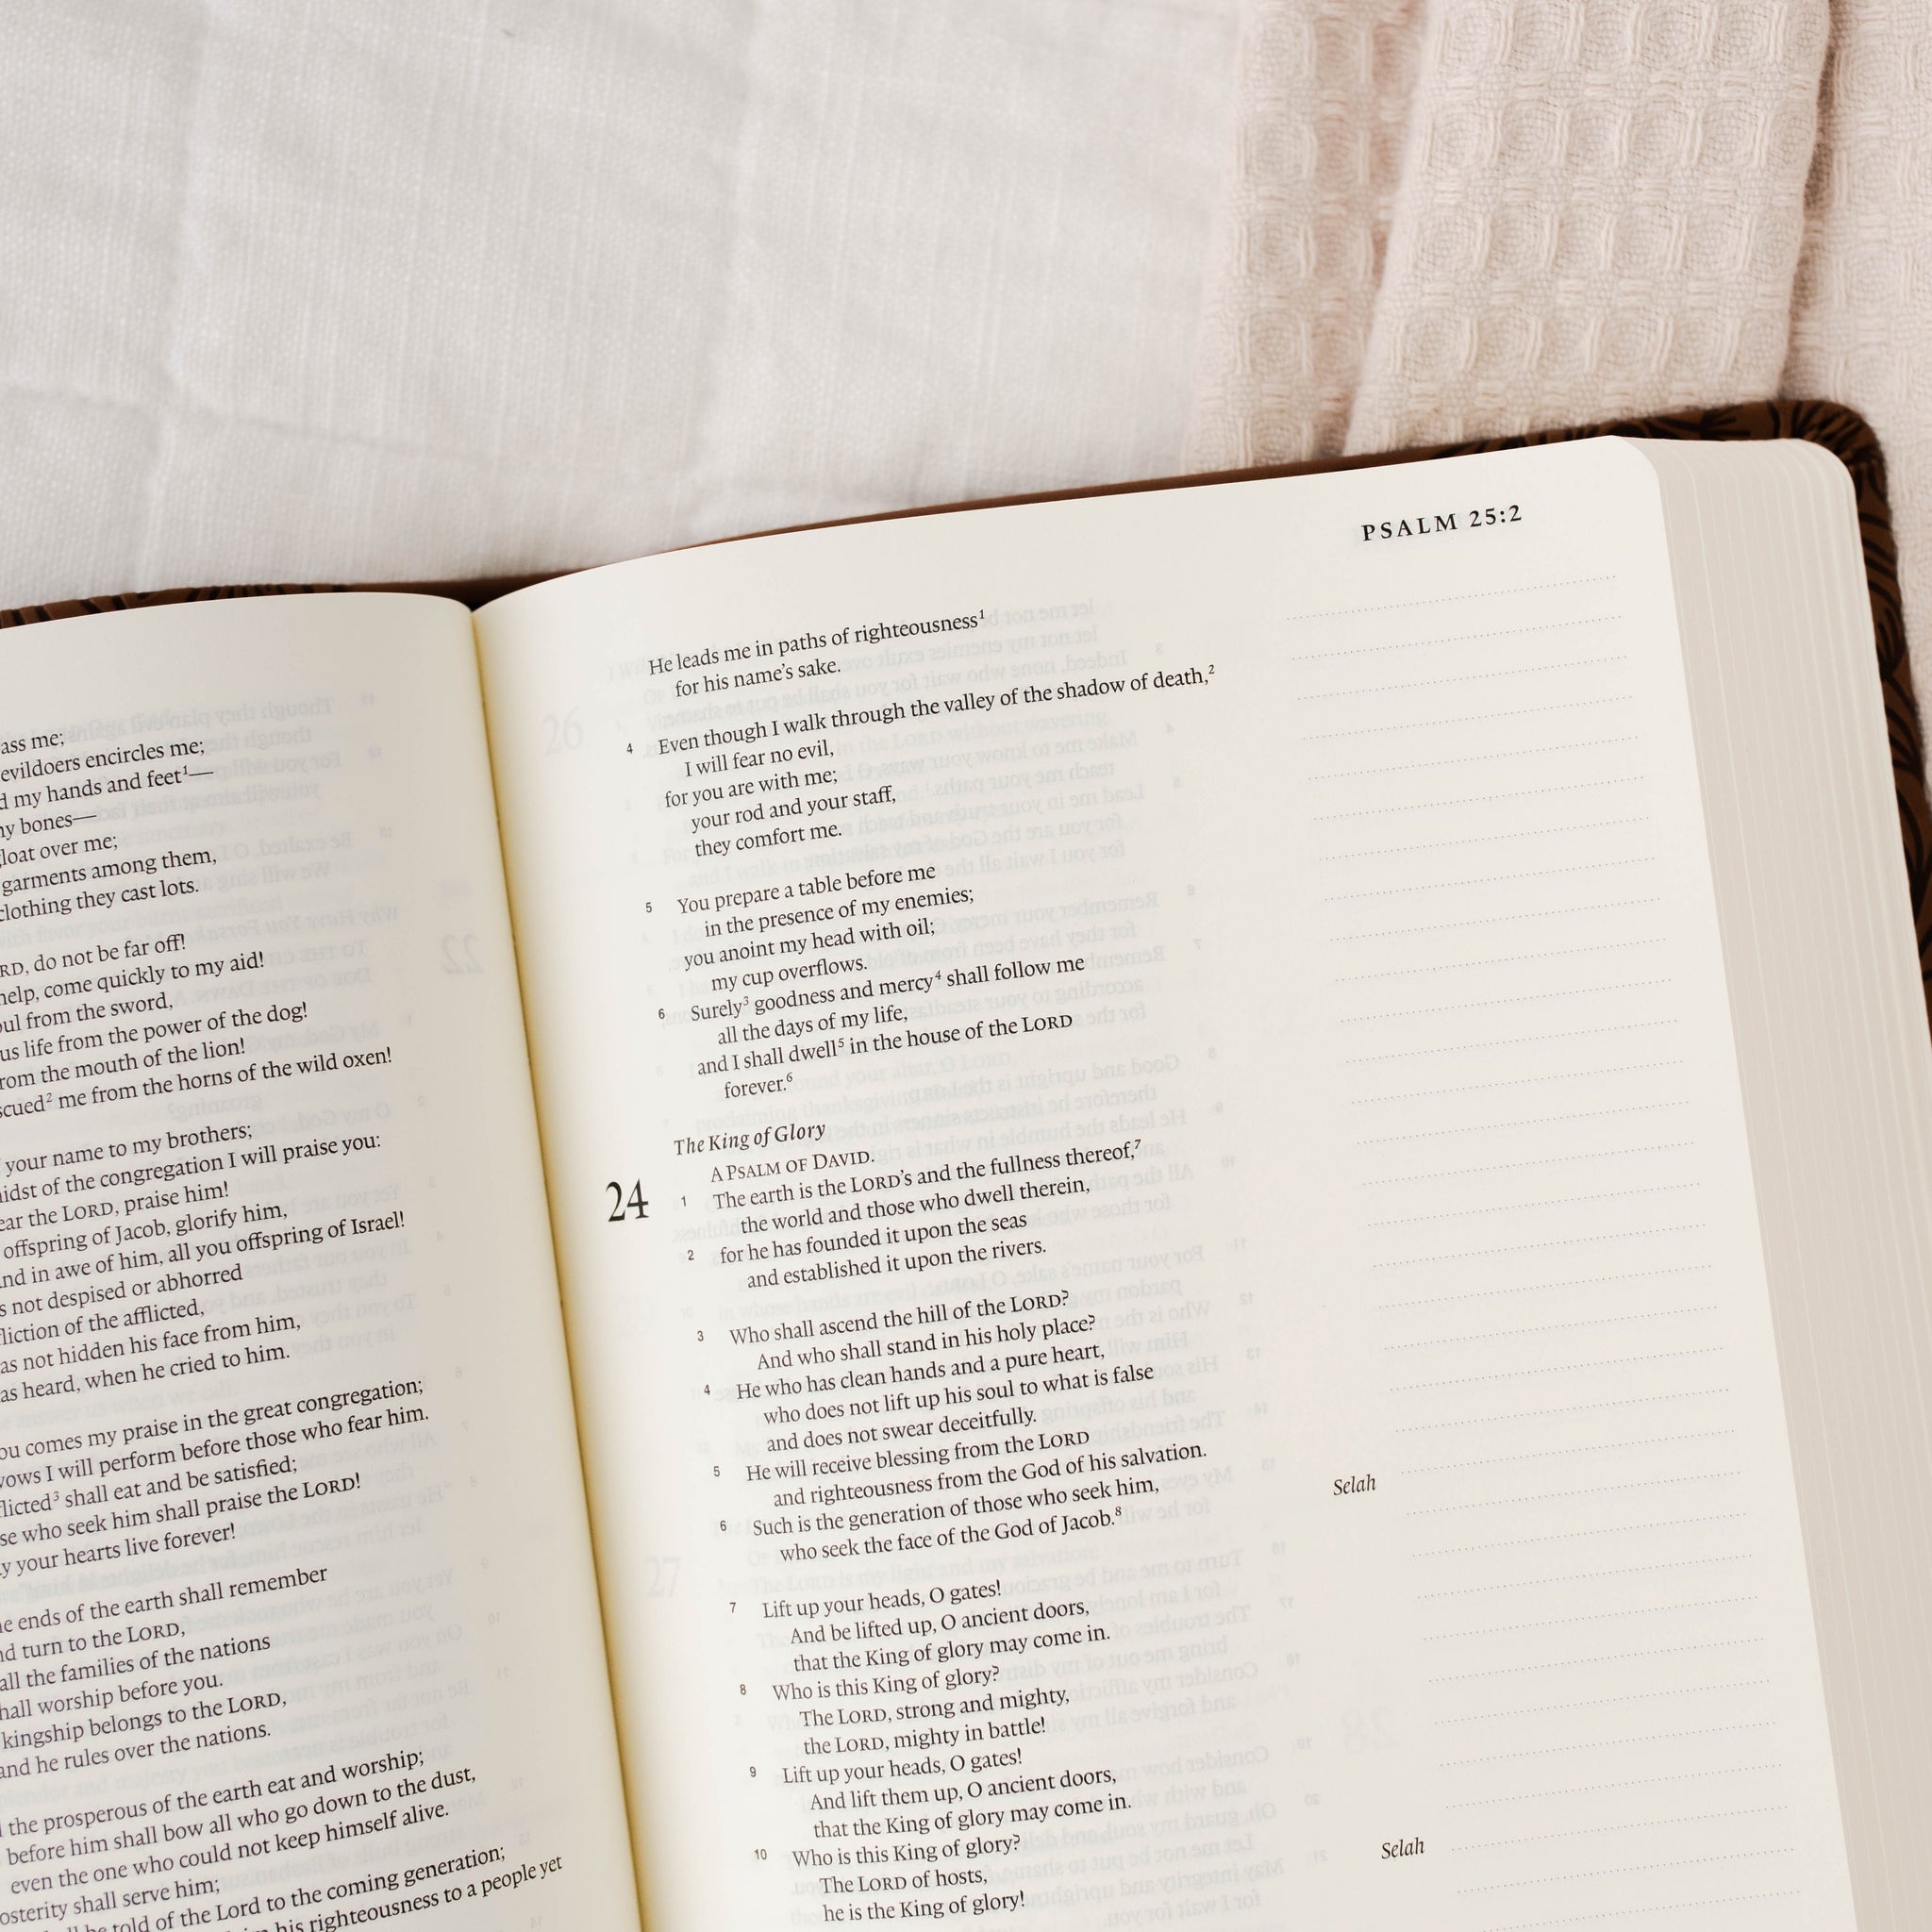 me;
evildoers encircles me;
my hands and feet¹—
bones—
gloat over me;
garments among them,
clothing they cast lots.
do not be far off!
help, come quickly to my aid!
soul from the sword,
life from the power of the dog!
from the mouth of the lion!
me from the horns of the wild oxen!
your name to my brothers;
midst of the congregation I will praise you:
fear the LORD, praise him!
offspring of Jacob, glorify him,
and in awe of him, all you offspring of Israel!
not despised or abhorred
affliction of the afflicted,
not hidden his face from him,
has heard, when he cried to him.
comes my praise in the great congregation;
vows I will perform before those who fear him.
shall eat and be satisfied;
who seek him shall praise the LORD!
your hearts live forever!
ends of the earth shall remember
and turn to the LORD,
all the families of the nations
shall worship before you.
kingship belongs to the LORD,
and he rules over the nations.
the prosperous of the earth eat and worship;
before him shall bow all who go down to the dust,
even the one who could not keep himself alive.
shall serve him;
told of the Lord to the coming generation;
his righteousness to a people yet
PSALM 25:2
He leads me in paths of righteousness¹
for his name's sake.
4 Even though I walk through the valley of the shadow of death,²
I will fear no evil,
for you are with me;
your rod and your staff,
they comfort me.
5 You prepare a table before me
in the presence of my enemies;
you anoint my head with oil;
my cup overflows.
6 Surely³ goodness and mercy⁴ shall follow me
all the days of my life,
and I shall dwell⁵ in the house of the LORD
forever.⁶
The King of Glory
A PSALM OF DAVID.
24 1 The earth is the LORD's and the fullness thereof,⁷
the world and those who dwell therein,
2 for he has founded it upon the seas
and established it upon the rivers.
3 Who shall ascend the hill of the LORD?
And who shall stand in his holy place?
4 He who has clean hands and a pure heart,
who does not lift up his soul to what is false
and does not swear deceitfully.
5 He will receive blessing from the LORD
and righteousness from the God of his salvation.
6 Such is the generation of those who seek him,
who seek the face of the God of Jacob.⁸ Selah
7 Lift up your heads, O gates!
And be lifted up, O ancient doors,
that the King of glory may come in.
8 Who is this King of glory?
The LORD, strong and mighty,
the LORD, mighty in battle!
9 Lift up your heads, O gates!
And lift them up, O ancient doors,
that the King of glory may come in.
10 Who is this King of glory?
The LORD of hosts,
he is the King of glory! Selah